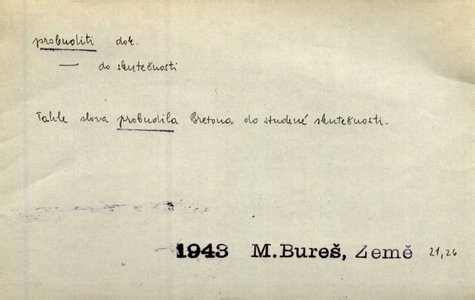 probuditi dok.
— do skutečnosti
Tahle slova probudila Bretona do studené skutečnosti.
1943 M.Bureš, Země 21,26